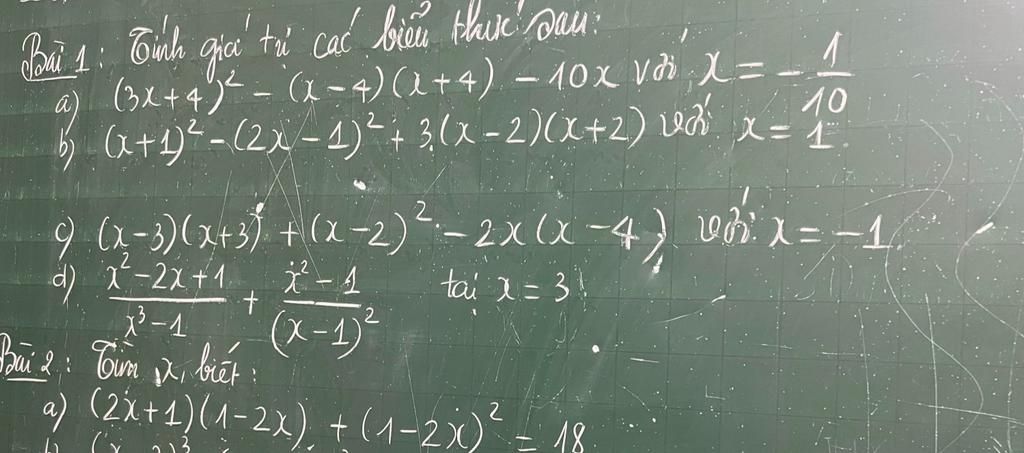 Bài 1: Tính giá trị các biểu thức sau:
a) (3x+4)² - (x-4)(x+4) - 10x với x = -1/10
b) (x+1)² - (2x-1)² + 3(x-2)(x+2) với x = 1.
c) (x-3)(x+3) + (x-2)² - 2x(x-4) với x = -1
d) (x²-2x+1)/(x³-1) + (x²-1)/(x-1)² tại x = 3
Bài 2: Tìm x, biết:
a) (2x+1)(1-2x) + (1-2x)² = 18